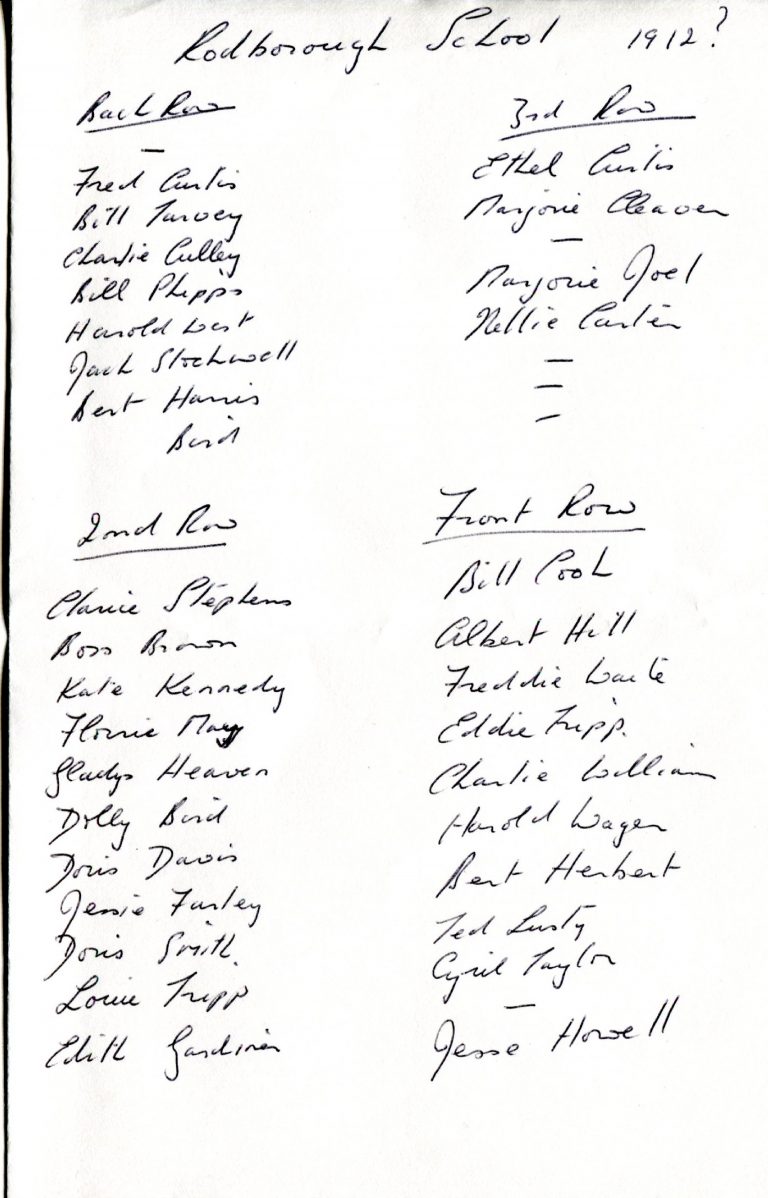 Rodborough School 1912?
Back Row
—
Fred Curtis
Bill Turvey
Charlie Culley
Bill Phipps
Harold West
Jack Stockwell
Bert Harris
Bird
2nd Row
Clarice Stephens
Boss Brown
Kate Kennedy
Florrie May
Gladys Heaven
Dolly Bird
Doris Davis
Jessie Furley
Doris Smith.
Louie Tripp
Edith Gardiner
3rd Row
Ethel Curtis
Marjorie Cleaver
—
Marjorie Joel
Nellie Carter
—
—
—
Front Row
Bill Cook
Albert Hill
Freddie Waite
Eddie Tripp.
Charlie William
Harold Wager
Bert Herbert
Ted Lusty
Cyril Taylor
—
Jesse Howell